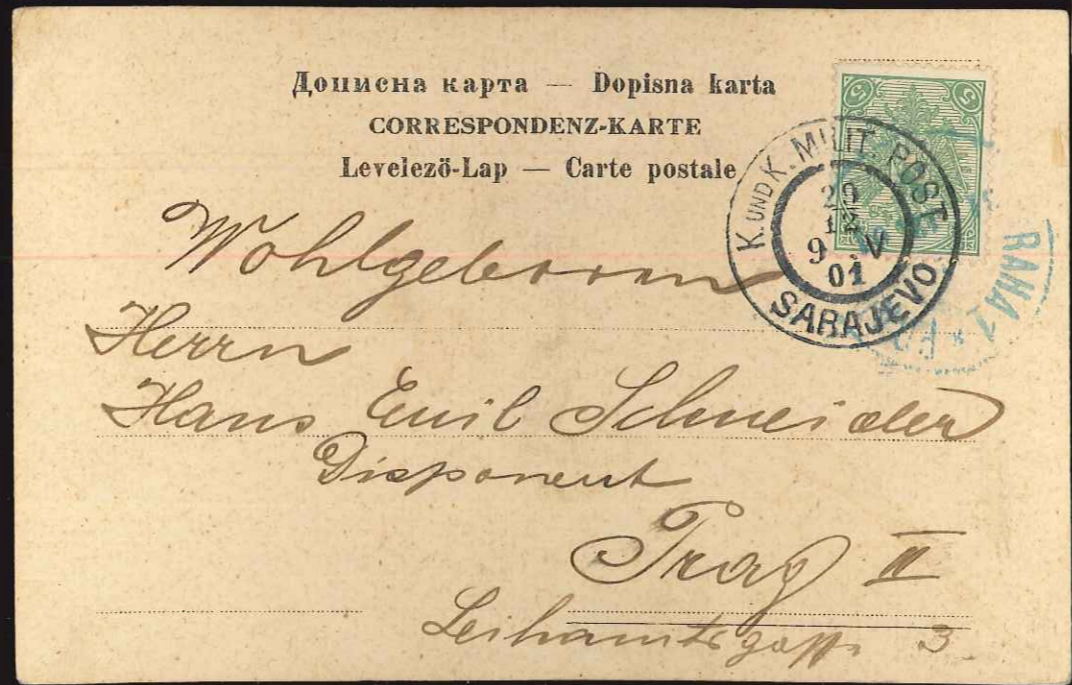 Дописна карта — Dopisna karta
CORRESPONDENZ-KARTE
Levelező-Lap — Carte postale
5 5
K. UND K. MILIT. POST
20
12
9 V
01
SARAJEVO
RAHA 1
Wohlgeboren
Herrn
Hans Emil Schneider
Disponent
Prag II
Leihamtsgasse 3